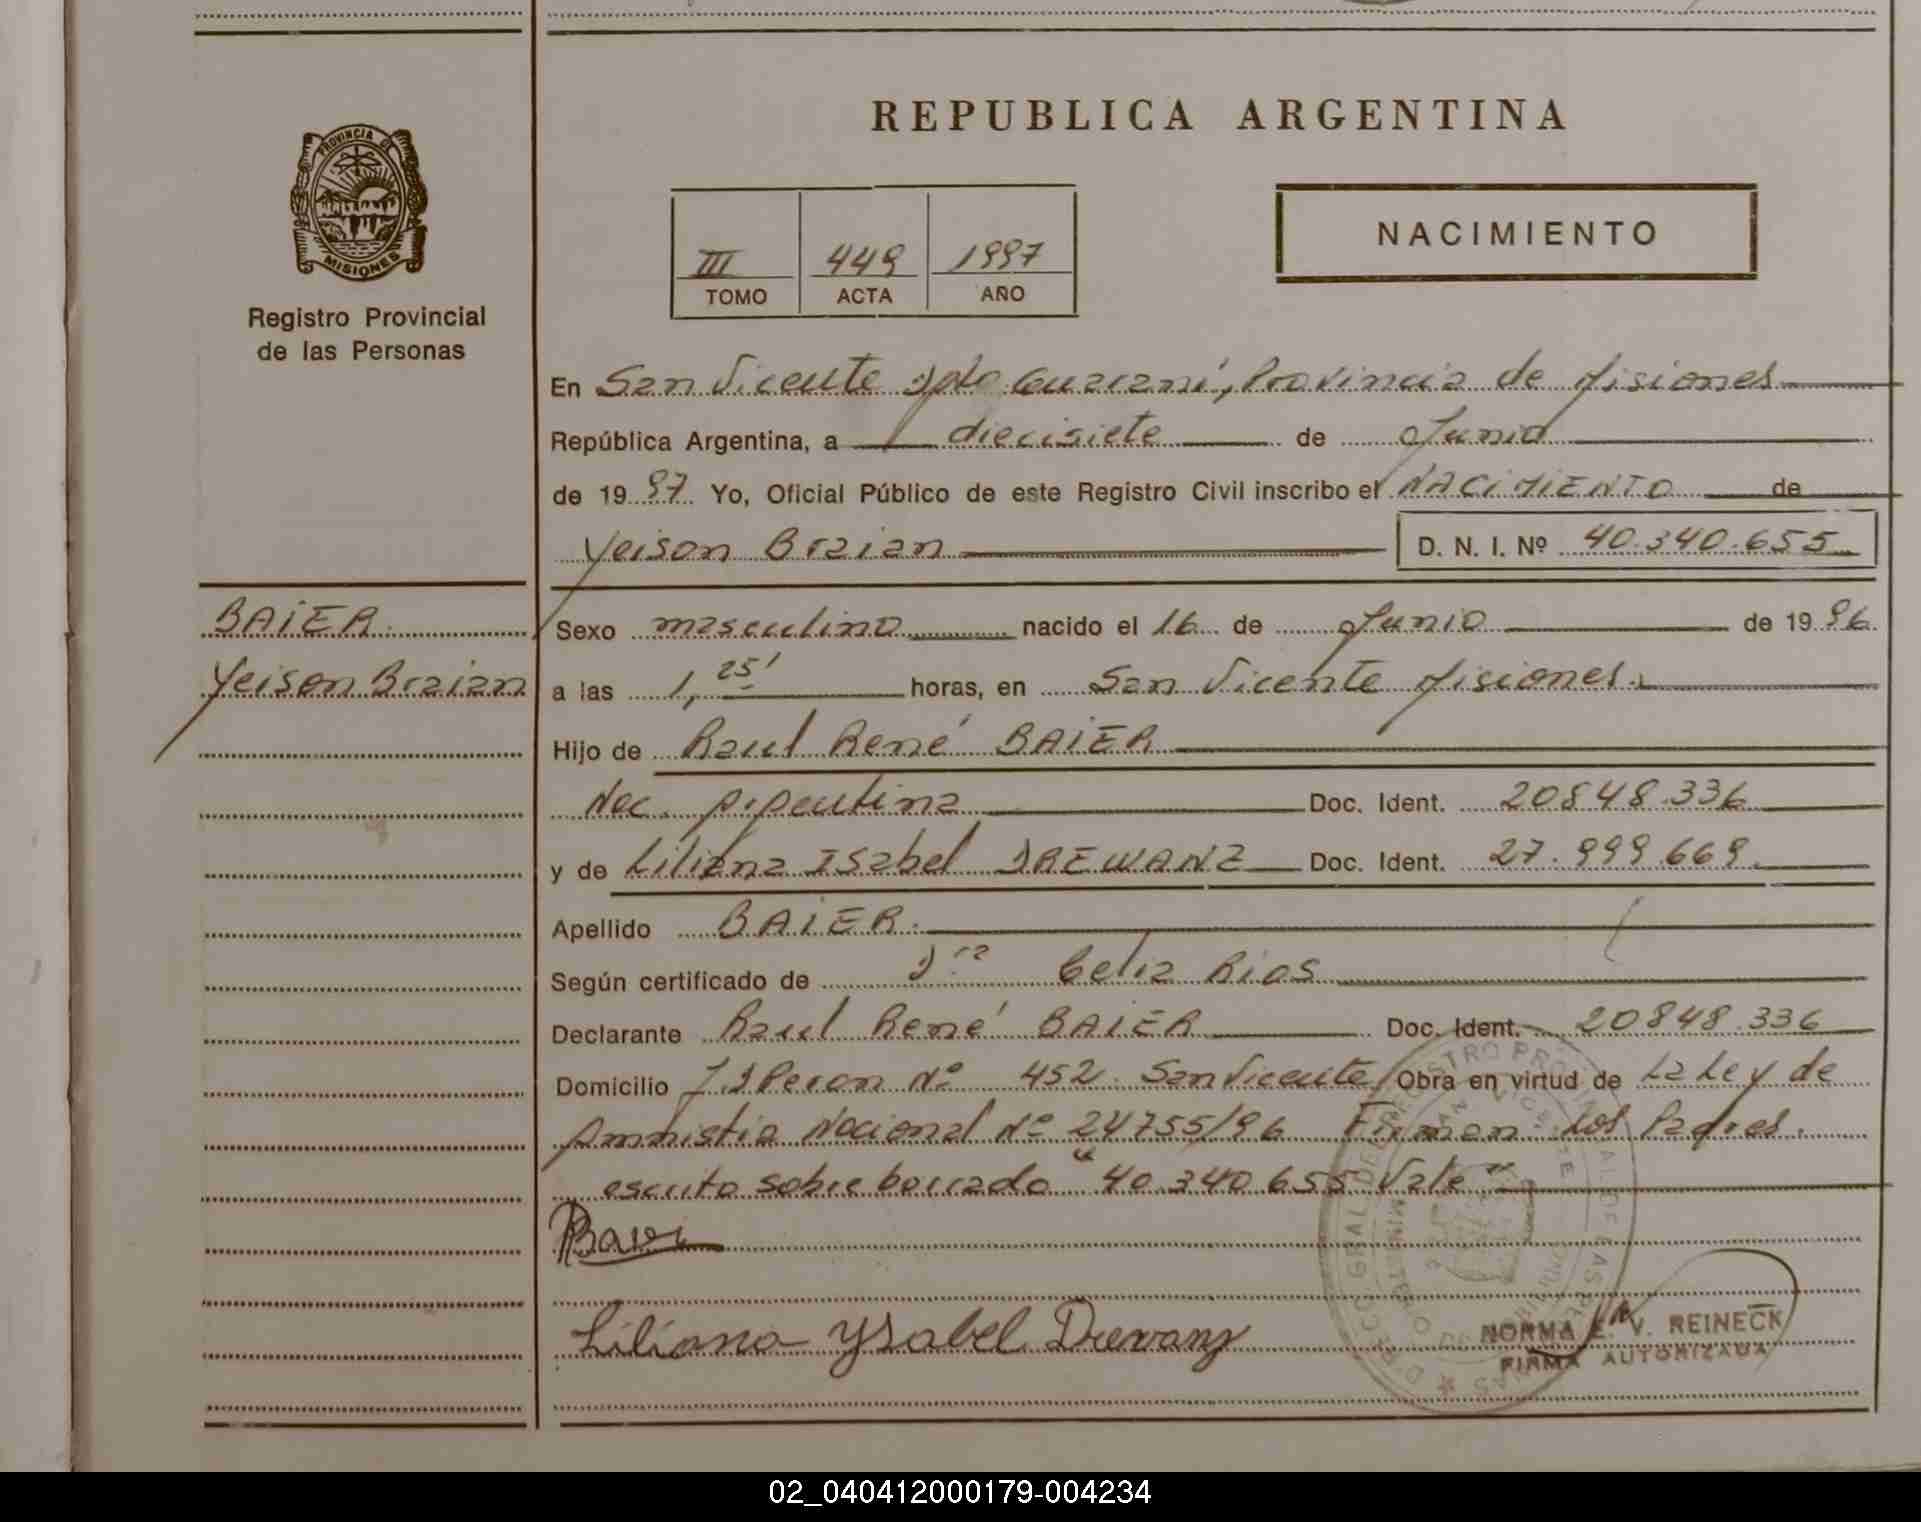 PROVINCIA DE
MISIONES
Registro Provincial
de las Personas
REPUBLICA ARGENTINA
III 449 1997
TOMO ACTA AÑO
NACIMIENTO
En San Vicente Dpto Guaraní, Provincia de Misiones
República Argentina, a diecisiete de Junio
de 1997 Yo, Oficial Público de este Registro Civil inscribo el NACIMIENTO de
Yeison Braian D. N. I. Nº 40.340.655
BAiER
Yeison Braian
Sexo masculino nacido el 16 de Junio de 1996
a las 1,25' horas, en San Vicente Misiones.
Hijo de Raul René BAiER
Nac. Argentina Doc. Ident. 20848.336
y de Liliana Isabel DREWANZ Doc. Ident. 27.999.669
Apellido BAiER.
Según certificado de Dra Celia Rios
Declarante Raul René BAiER Doc. Ident. 20848.336
Domicilio J.D Peron Nº 452 San Vicente Obra en virtud de La Ley de
Amnistia Nacional Nº 24755/96 Firman Los Padres.
escrito sobre borrado "40.340.655 Vale"
Liliana Ysabel Drewanz
NORMA E. V. REINECK
FIRMA AUTORIZADA
02_040412000179-004234